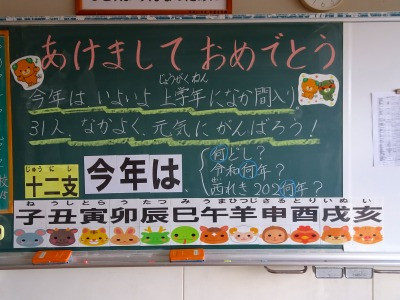 あけまして おめでとう
今年は いよいよ 上学年(じょうがくねん)になか間入り
31人、なかよく、元気に がんばろう！
十二支(じゅうにし)
今年は、
何どし？
令和何年？
西(せい)れき 202何年？
ね うし とら う たつ み うま ひつじ さる とり いぬ い
子 丑 寅 卯 辰 巳 午 羊 申 酉 戌 亥